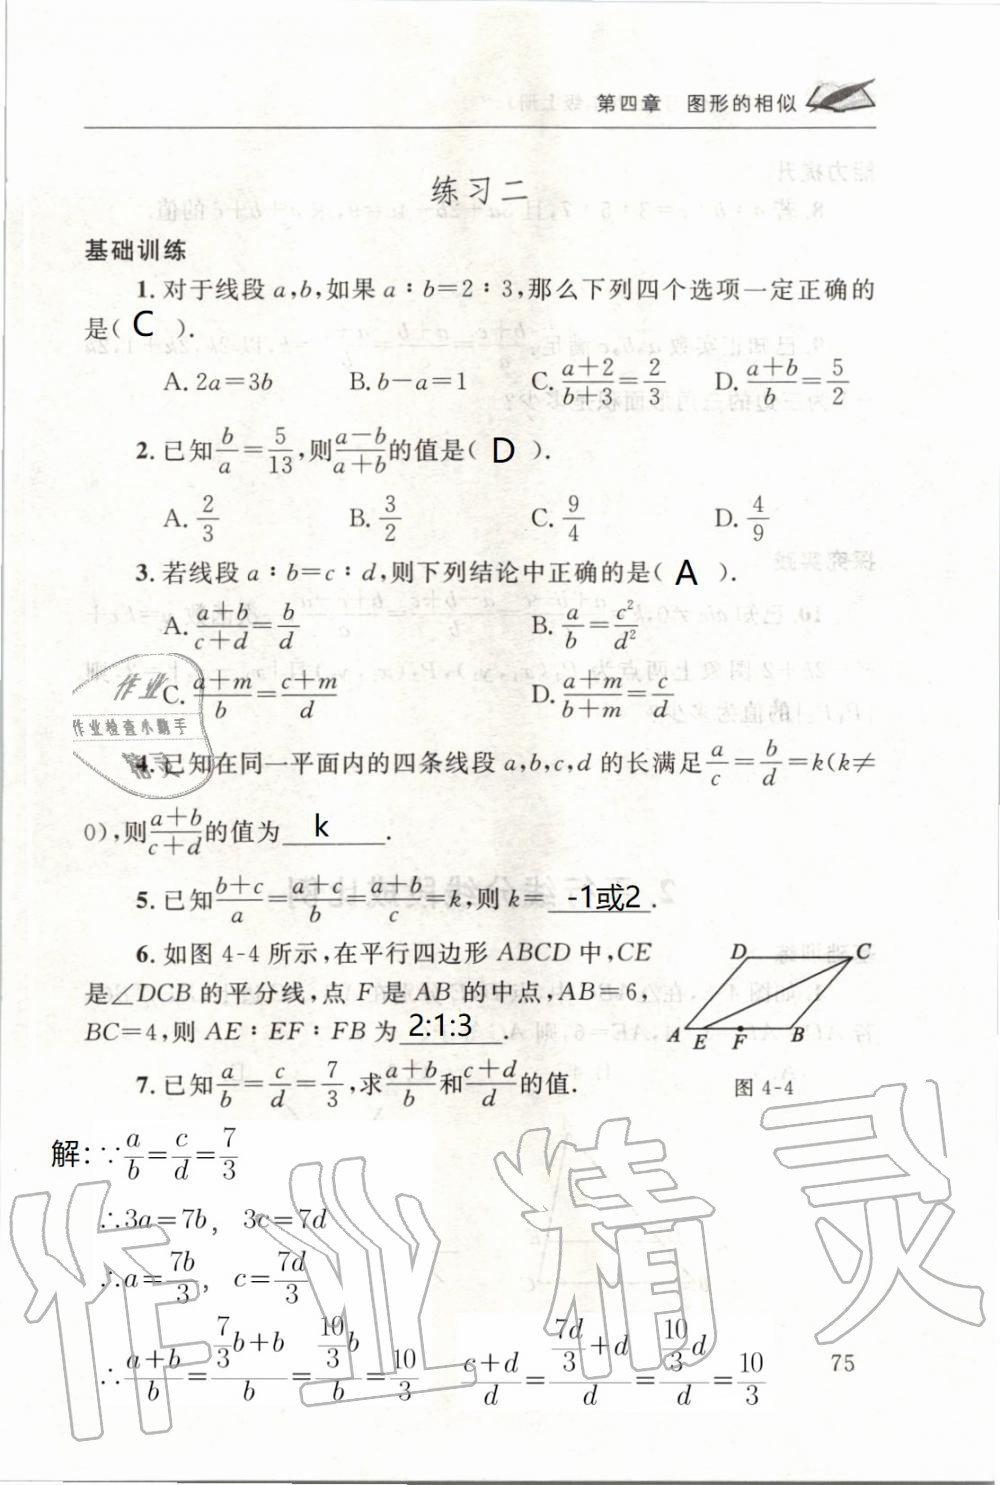 第四章 图形的相似
练习二
基础训练
1. 对于线段 a,b,如果 a∶b=2∶3,那么下列四个选项一定正确的
是( C ).
A. 2a=3b B. b-a=1 C. (a+2)/(b+3)=2/3 D. (a+b)/b=5/2
2. 已知 b/a=5/13,则 (a-b)/(a+b) 的值是( D ).
A. 2/3 B. 3/2 C. 9/4 D. 4/9
3. 若线段 a∶b=c∶d,则下列结论中正确的是( A ).
A. (a+b)/(c+d)=b/d B. a/b=c²/d²
C. (a+m)/b=(c+m)/d D. (a+m)/(b+m)=c/d
作业
作业检查小助手
精灵
4. 已知在同一平面内的四条线段 a,b,c,d 的长满足 a/c=b/d=k(k≠
0),则 (a+b)/(c+d) 的值为 k .
5. 已知 (b+c)/a=(a+c)/b=(a+b)/c=k,则 k= -1或2 .
6. 如图 4-4 所示,在平行四边形 ABCD 中,CE
是∠DCB 的平分线,点 F 是 AB 的中点,AB=6,
BC=4,则 AE∶EF∶FB 为 2:1:3 .
D C
A E F B
图 4-4
7. 已知 a/b=c/d=7/3,求 (a+b)/b 和 (c+d)/d 的值.
解:∵a/b=c/d=7/3
∴3a=7b, 3c=7d
∴a=7b/3, c=7d/3
∴(a+b)/b=(7/3b+b)/b=(10/3b)/b=10/3 (c+d)/d=(7d/3+d)/d=(10/3d)/d=10/3
75
作业精灵